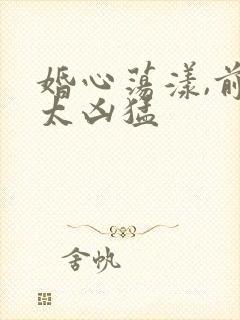 婚心荡漾,前
太凶猛
舍帆